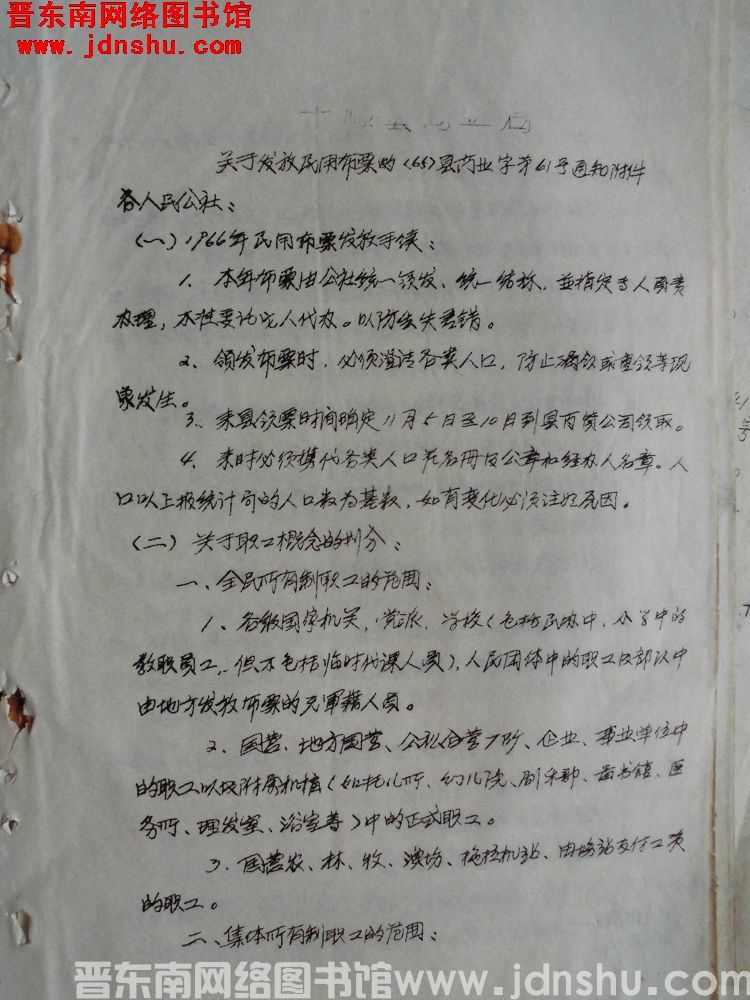 晋东南网络图书馆
www.jdnshu.com
关于发放民用布票的(65)县商业字第61号通知附件
各人民公社:
(一)1966年民用布票发放手续:
1. 本年布票由公社统一领发、统一结标,並指定专人负责
办理,不准委托他人代办。以防丢失差错。
2、领发布票时,必须澄清各类人口,防止漏领或重领等现
象发生。
3. 来县领票时间确定11月5日至10日到县百货公司领取。
4. 来时必须携代各类人口花名册及公章和经办人名章。人
口以上报统计局的人口数为基数,如有变化必须注明原因。
(二)关于职工概念的划分:
一、全民所有制职工的范围:
1、各级国家机关,党派,学校(包括民办中、小学中的
教职员工,但不包括临时代课人员),人民团体中的职工及部队中
由地方发放布票的无軍籍人员。
2、国营、地方国营、公私合营厂矿、企业、事业单位中
的职工以及附属机构(如托儿所、幼儿院、俱乐部、图书馆、医
务所、理发室、浴室等)中的正式职工。
3、国营农、林、牧、渔场、拖拉机站、由场站支付工资
的职工。
二、集体所有制职工的范围:
晋东南网络图书馆www.jdnshu.com